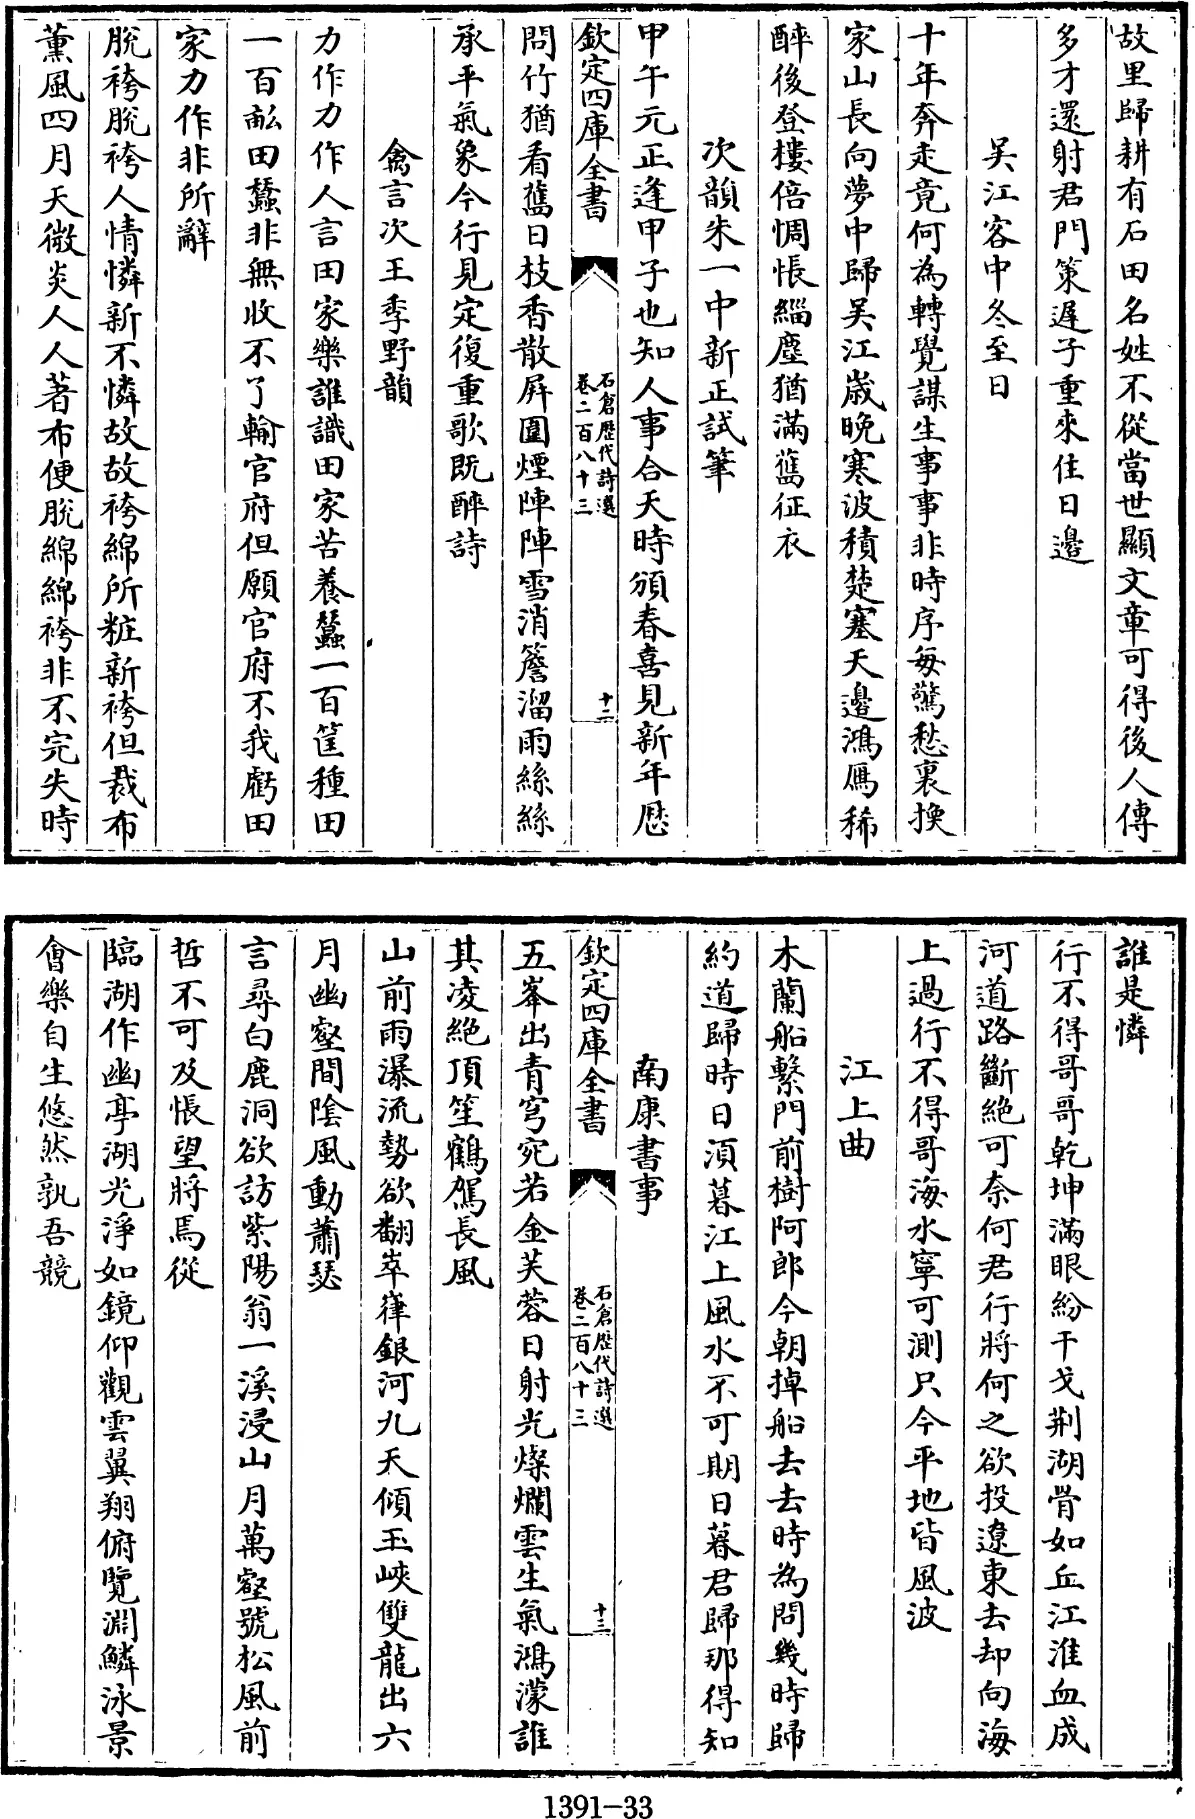 故里歸耕有石田名姓不從當世顯文章可得後人傳
多才還射君門策遲子重來住日邊
吳江客中冬至日
十年奔走竟何為轉覺謀生事事非時序每驚愁裏換
家山長向夢中歸吳江歲晚寒波積楚塞天邊鴻雁稀
醉後登樓倍惆悵緇塵猶滿舊征衣
次韻朱一中新正試筆
甲午元正逢甲子也知人事合天時頒春喜見新年歷
欽定四庫全書
石倉歷代詩選
卷二百八十三
十二
問竹猶看舊日枝香散屏圍煙陣陣雪消簷溜雨絲絲
承平氣象今行見定復重歌既醉詩
禽言次王季野韻
力作力作人言田家樂誰識田家苦養蠶一百筐種田
一百畝田蠶非無收不了輸官府但願官府不我虧田
家力作非所辭
脫袴脫袴人情憐新不憐故故袴綿所粧新袴但裁布
薰風四月天微炎人人著布便脫綿綿袴非不完失時
誰是憐
行不得哥哥乾坤滿眼紛干戈荆湖骨如丘江淮血成
河道路斷絕可奈何君行將何之欲投遼東去却向海
上過行不得哥海水寧可測只今平地皆風波
江上曲
木蘭船繫門前樹阿郎今朝掉船去去時為問幾時歸
約道歸時日湏暮江上風水不可期日暮君歸那得知
南康書事
欽定四庫全書
石倉歷代詩選
卷二百八十三
十三
五峯出青穹宛若金芙蓉日射光燦爛雲生氣鴻濛誰
其凌絕頂笙鶴駕長風
山前雨瀑流勢欲翻崒嵂銀河九天傾玉峽雙龍出六
月幽壑間陰風動蕭瑟
言尋白鹿洞欲訪紫陽翁一溪浸山月萬壑號松風前
哲不可及悵望將焉從
臨湖作幽亭湖光淨如鏡仰觀雲翼翔俯覽淵鱗泳景
會樂自生悠然孰吾競
1391-33